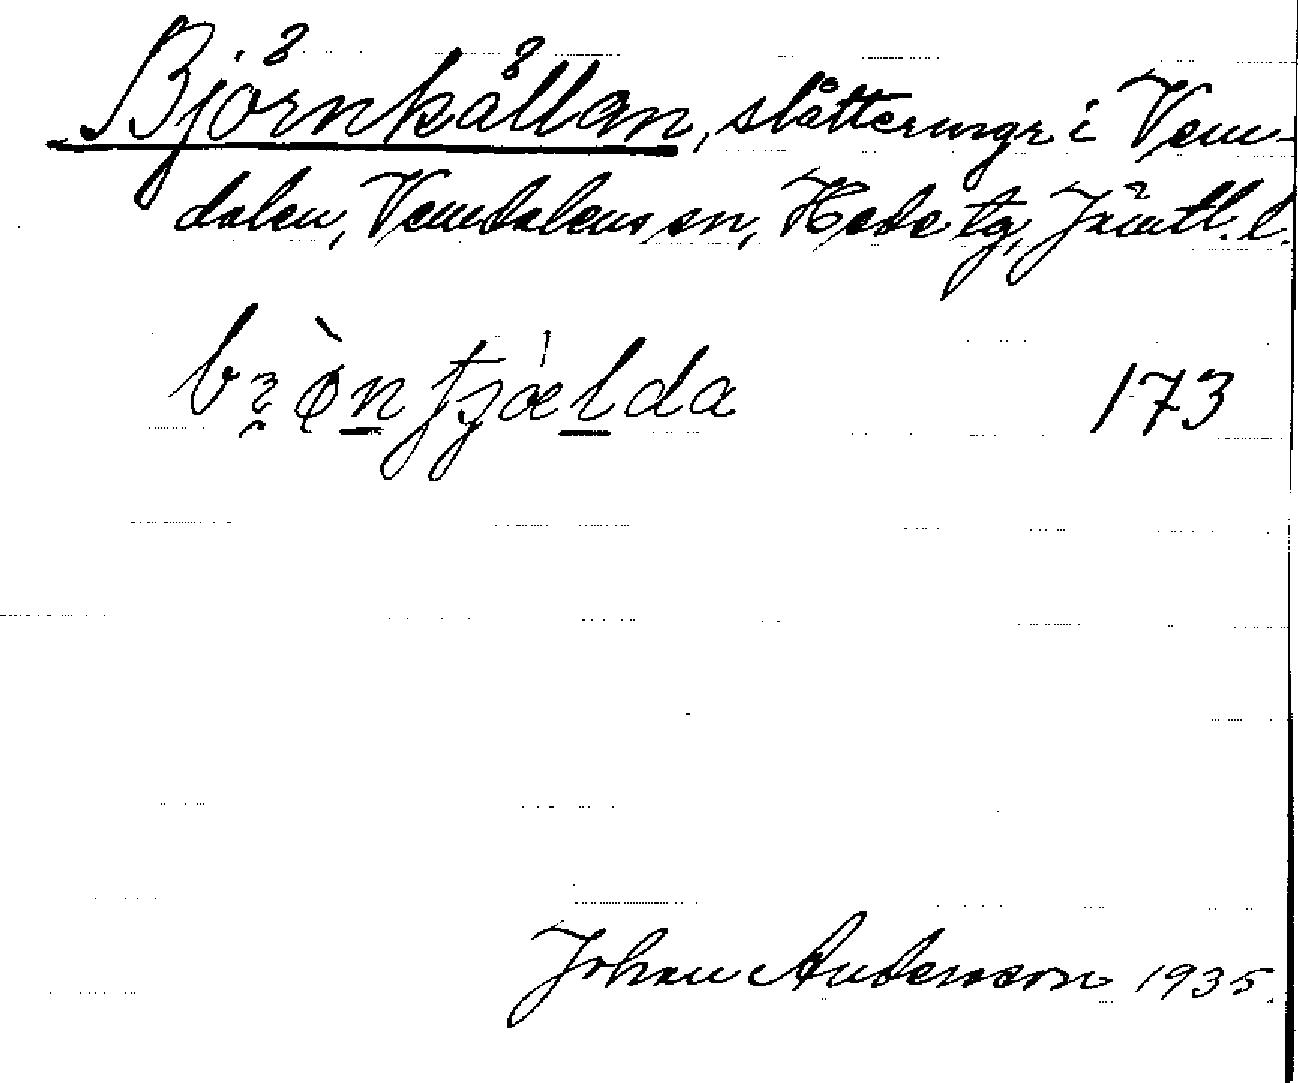 Björnkällan, slåttermyr i Vem-
dalen, Vemdalens sn, Hede tg, Jämtl. l.
173
Johan Anderson 1935.